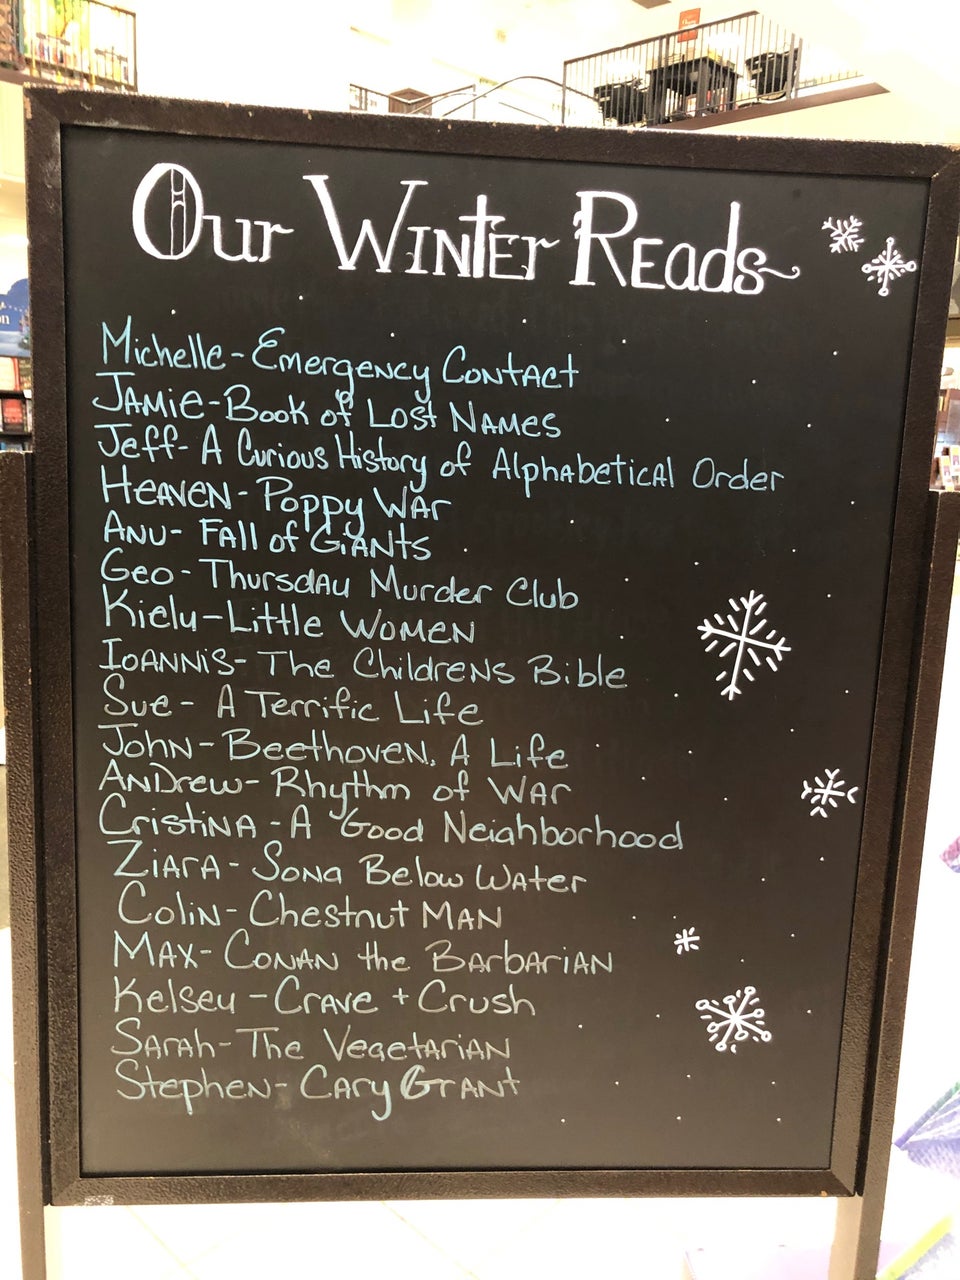 Our Winter Reads
Michelle - Emergency Contact
Jamie - Book of Lost Names
Jeff - A Curious History of Alphabetical Order
Heaven - Poppy War
Anu - Fall of Giants
Geo - Thursday Murder Club
Kiely - Little Women
Ioannis - The Childrens Bible
Sue - A Terrific Life
John - Beethoven, A Life
Andrew - Rhythm of War
Cristina - A Good Neighborhood
Ziara - Song Below Water
Colin - Chestnut Man
Max - Conan the Barbarian
Kelsey - Crave + Crush
Sarah - The Vegetarian
Stephen - Cary Grant